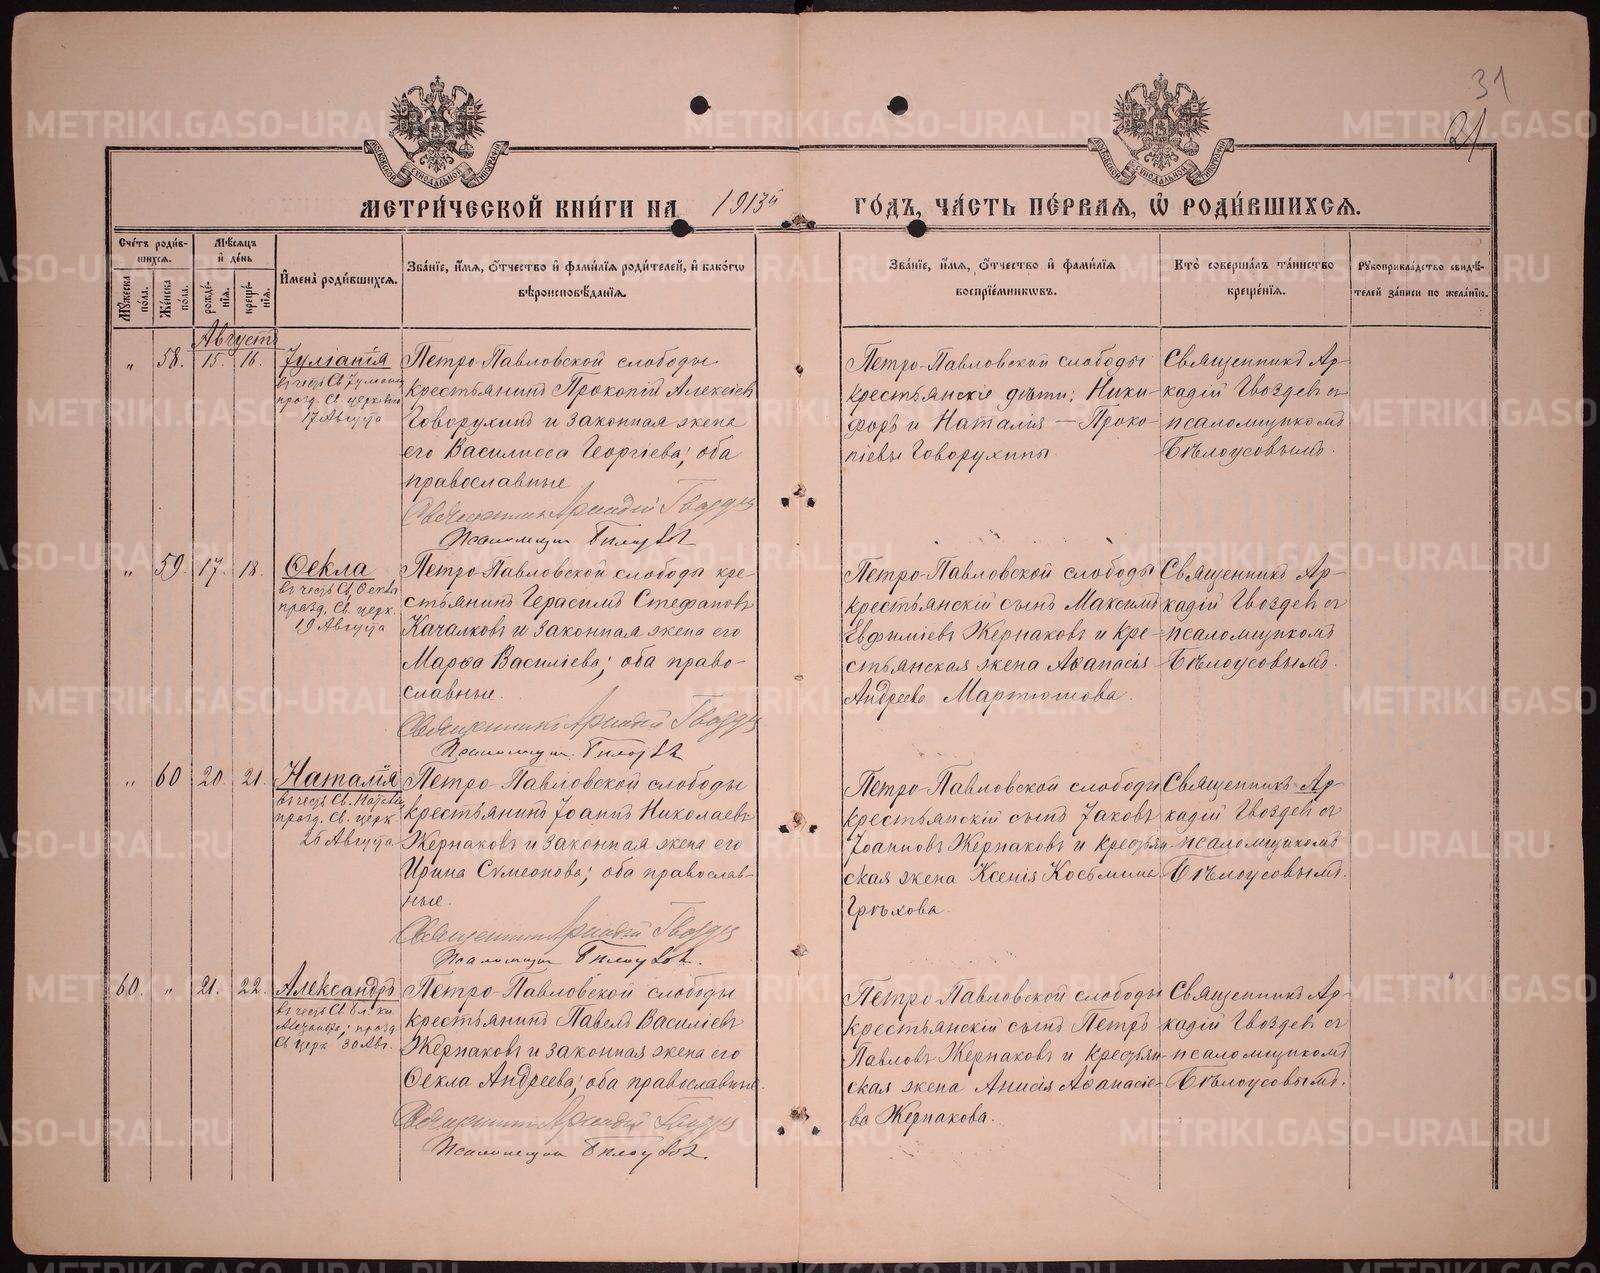 31
21
МЕТРИ́ЧЕСКОЙ КНИ́ГИ НА 1913й ГО́ДЪ, ЧА́СТЬ ПЕ́РВАЯ, Ѡ РОДИ́ВШИХСЯ.
Сче́тъ роди́в-
шихся.
Мꙋ́жеска по́ла.
Же́нска по́ла.
Мѣ́сяцъ и де́нь
рожде́-нія.
креще́-нія.
Имена̀ роди́вшихся.
Зва́ніе, и́мя, о́тчество и фами́лія роди́телей, и како́гѡ
вѣроисповѣ́данія.
Зва́ніе, и́мя, о́тчество и фами́лія
воспріе́мникѡвъ.
Кто̀ соверша́лъ та́инство
креще́нія.
Рꙋкоприкла́дство свидѣ́-
телей за́писи по жела́нію.
Августъ
„ 58. 15. 16. Іуліанія
въ честь Св. Іуліаніи
празд. Св. церковію
17 Августа
Петро-Павловской слободы
крестьянинъ Прокопій Алексіевъ
Говорухинъ и законная жена
его Василисса Георгіева; оба
православные
Священникъ Аркадій Гвоздевъ
Псаломщикъ Бѣлоусовъ
Петро-Павловской слободы
крестьянскіе дѣти: Ники-
форъ и Наталія — Проко-
піевы Говорухины.
Священникъ Ар-
кадій Гвоздевъ съ
псаломщикомъ
Бѣлоусовымъ.
„ 59. 17. 18. Ѳекла
въ честь Св. Ѳеклы
празд. Св. церк.
19 Августа
Петро-Павловской слободы кре-
стьянинъ Герасимъ Стефановъ
Качалковъ и законная жена его
Марѳа Василіева; оба право-
славные.
Священникъ Аркадій Гвоздевъ
Псаломщикъ Бѣлоусовъ
Петро-Павловской слободы
крестьянскій сынъ Максимъ
Евфиміевъ Жернаковъ и кре-
стьянская жена Аѳанасія
Андреева Мартюшова.
Священникъ Ар-
кадій Гвоздевъ съ
псаломщикомъ
Бѣлоусовымъ.
„ 60 20. 21. Наталія
въ честь Св. Наталіи
празд. Св. церк
26 Августа
Петро-Павловской слободы
крестьянинъ Іоаннъ Николаевъ
Жернаковъ и законная жена его
Ирина Сѵмеонова; оба православ-
ные.
Священникъ Аркадій Гвоздевъ
Псаломщикъ Бѣлоусовъ.
Петро-Павловской слободы
крестьянскій сынъ Іаковъ
Іоанновъ Жернаковъ и крестьян-
ская жена Ксенія Косьмина
Грѣхова.
Священникъ Ар-
кадій Гвоздевъ съ
псаломщикомъ
Бѣлоусовымъ.
60. „ 21. 22. Александръ
въ честь Св. бл. кн.
Александра; празд.
Св церк 30 Авг.
Петро-Павловской слободы
крестьянинъ Павелъ Василіевъ
Жернаковъ и законная жена его
Ѳекла Андреева; оба православные.
Священникъ Аркадій Гвоздевъ
Псаломщикъ Бѣлоусовъ.
Петро-Павловской слободы
крестьянскій сынъ Петръ
Павловъ Жернаковъ и крестьян-
ская жена Анисія Аѳанасіе-
ва Жернакова.
Священникъ Ар-
кадій Гвоздевъ съ
псаломщикомъ
Бѣлоусовымъ.
METRIKI.GASO-URAL.RU